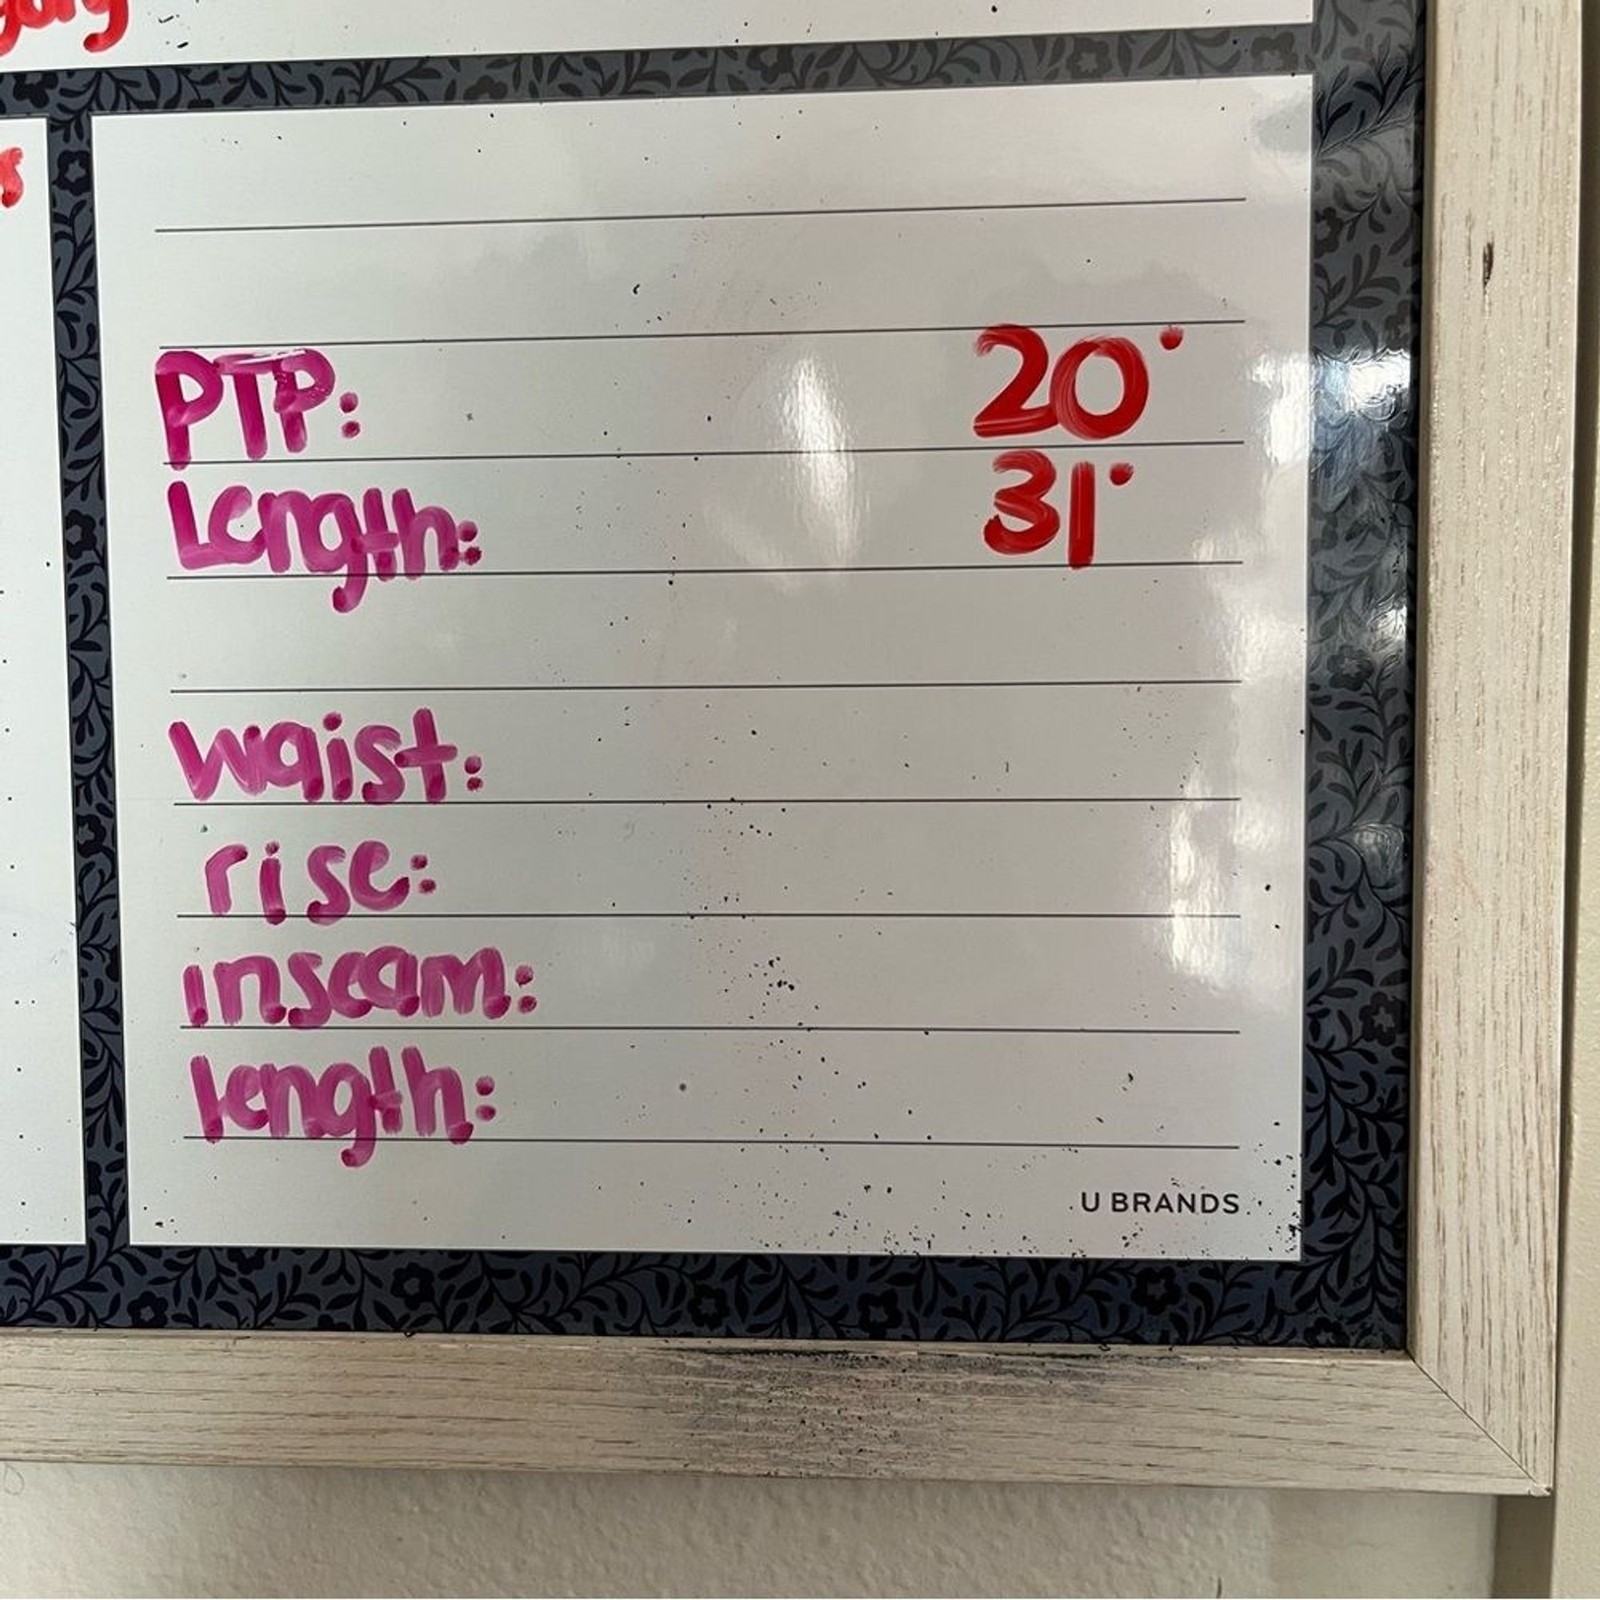 PTP: 20"
Length: 31"
waist:
rise:
inseam:
length:
U BRANDS